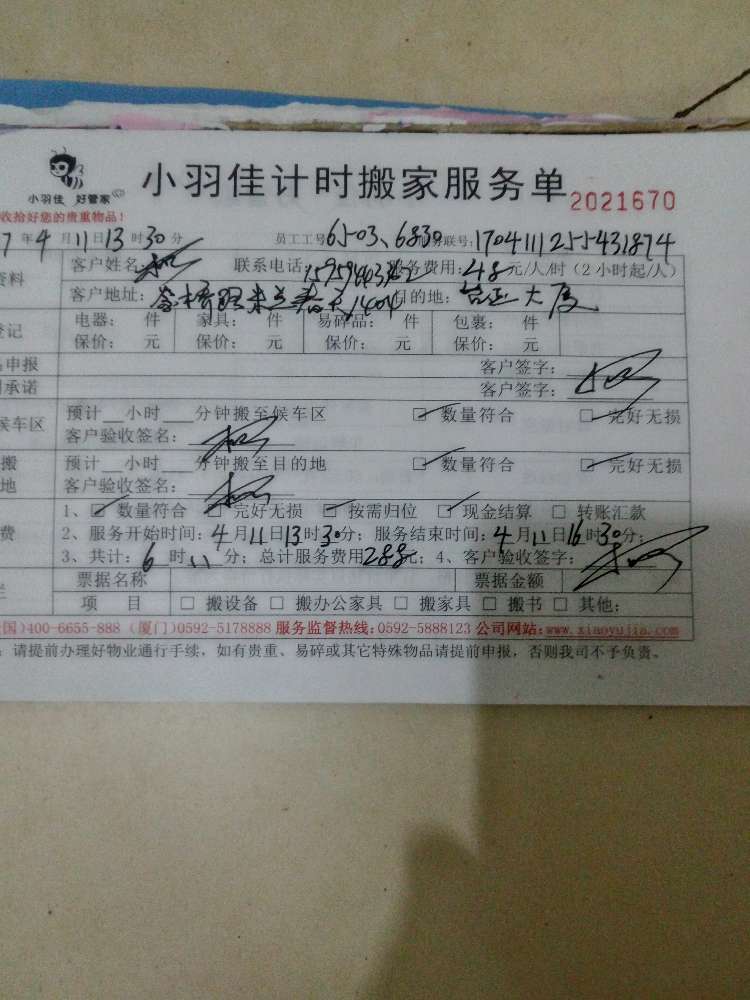 小羽佳 好管家
小羽佳计时搬家服务单 2021670
收拾好您的贵重物品！
7年4月11日13时30分 员工工号6503、6830 联号：1704111255431874
资料 客户姓名： 联系电话： 服务费用：48元/人/时（2小时起/人）
客户地址： 目的地： 大厦
登记 电器： 件 家具： 件 易碎品： 件 包裹： 件
保价： 元 保价： 元 保价： 元 保价： 元
申报 客户签字：
承诺 客户签字：
候车区 预计__小时___分钟搬至候车区 ☑数量符合 ☑完好无损
客户验收签名：
搬 预计__小时___分钟搬至目的地 ☑数量符合 ☑完好无损
地 客户验收签名：
1、☑数量符合 ☑完好无损 ☑按需归位 ☑现金结算 □转账汇款
费 2、服务开始时间：4月11日13时30分；服务结束时间：4月11日16时30分；
3、共计：6时11分；总计服务费用288元；4、客户验收签字：
票据名称 票据金额
栏 项 目 □搬设备 □搬办公家具 □搬家具 □搬书 □其他：
国)400-6655-888 (厦门)0592-5178888 服务监督热线：0592-5888123 公司网站：www.xiaoyujia.com
：请提前办理好物业通行手续，如有贵重、易碎或其它特殊物品请提前申报，否则我司不予负责。